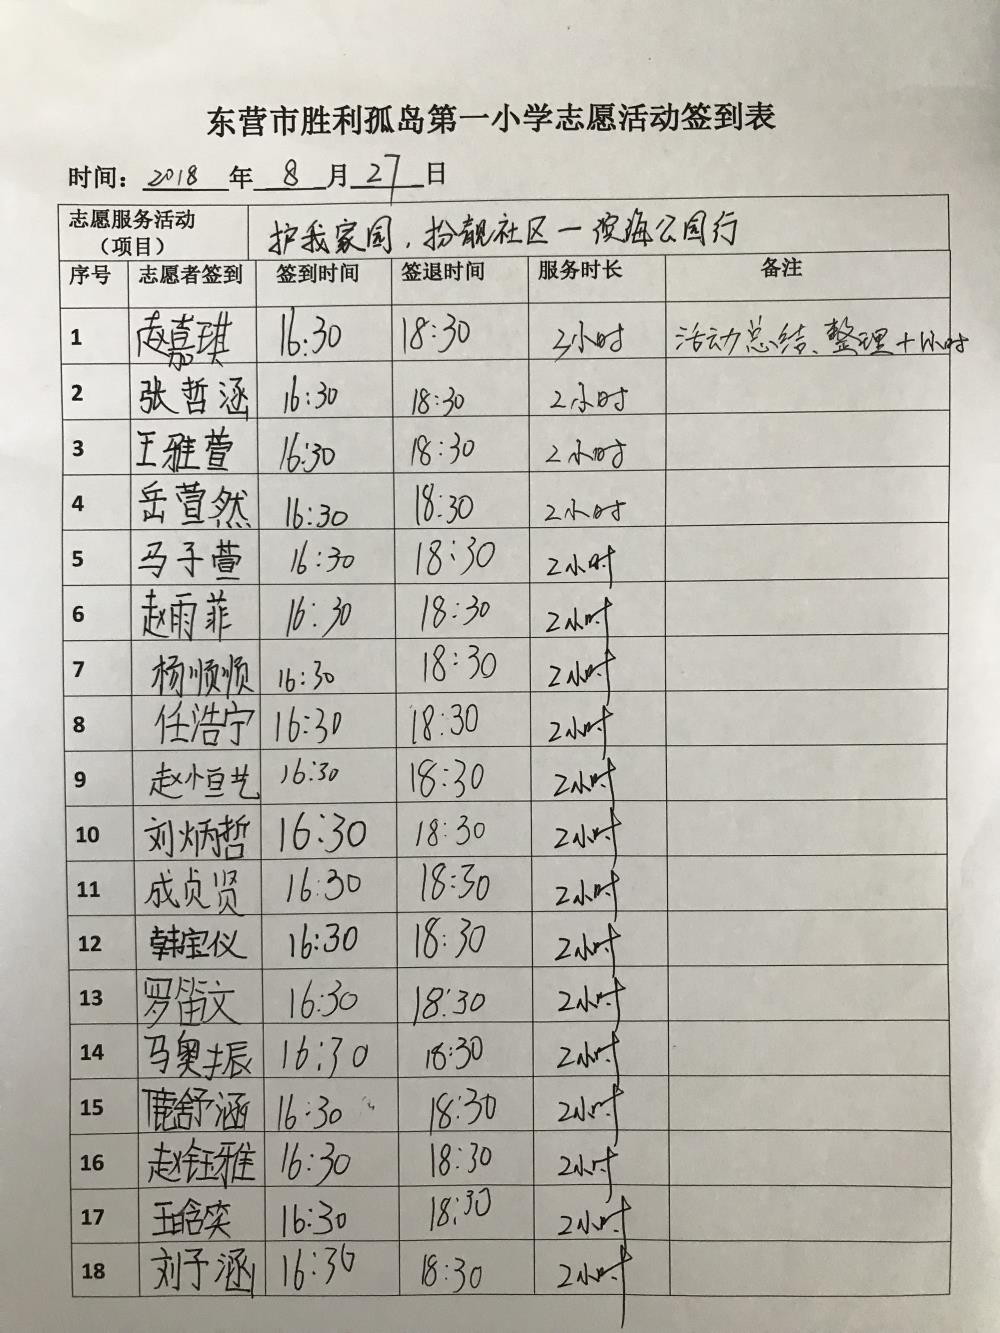 东营市胜利孤岛第一小学志愿活动签到表
时间：2018年8月27日
志愿服务活动（项目） 护我家园，扮靓社区一滨海公园行
序号 志愿者签到 签到时间 签退时间 服务时长 备注
1 赵嘉琪 16:30 18:30 2小时 活动总结、整理+1小时
2 张哲涵 16:30 18:30 2小时
3 王雅萱 16:30 18:30 2小时
4 岳萱然 16:30 18:30 2小时
5 马子萱 16:30 18:30 2小时
6 赵雨菲 16:30 18:30 2小时
7 杨顺顺 16:30 18:30 2小时
8 任浩宁 16:30 18:30 2小时
9 赵恒艺 16:30 18:30 2小时
10 刘炳哲 16:30 18:30 2小时
11 成贞贤 16:30 18:30 2小时
12 韩宝仪 16:30 18:30 2小时
13 罗笛文 16:30 18:30 2小时
14 马奥辰 16:30 18:30 2小时
15 鹿舒涵 16:30 18:30 2小时
16 赵钰雅 16:30 18:30 2小时
17 王晗奕 16:30 18:30 2小时
18 刘予涵 16:30 18:30 2小时